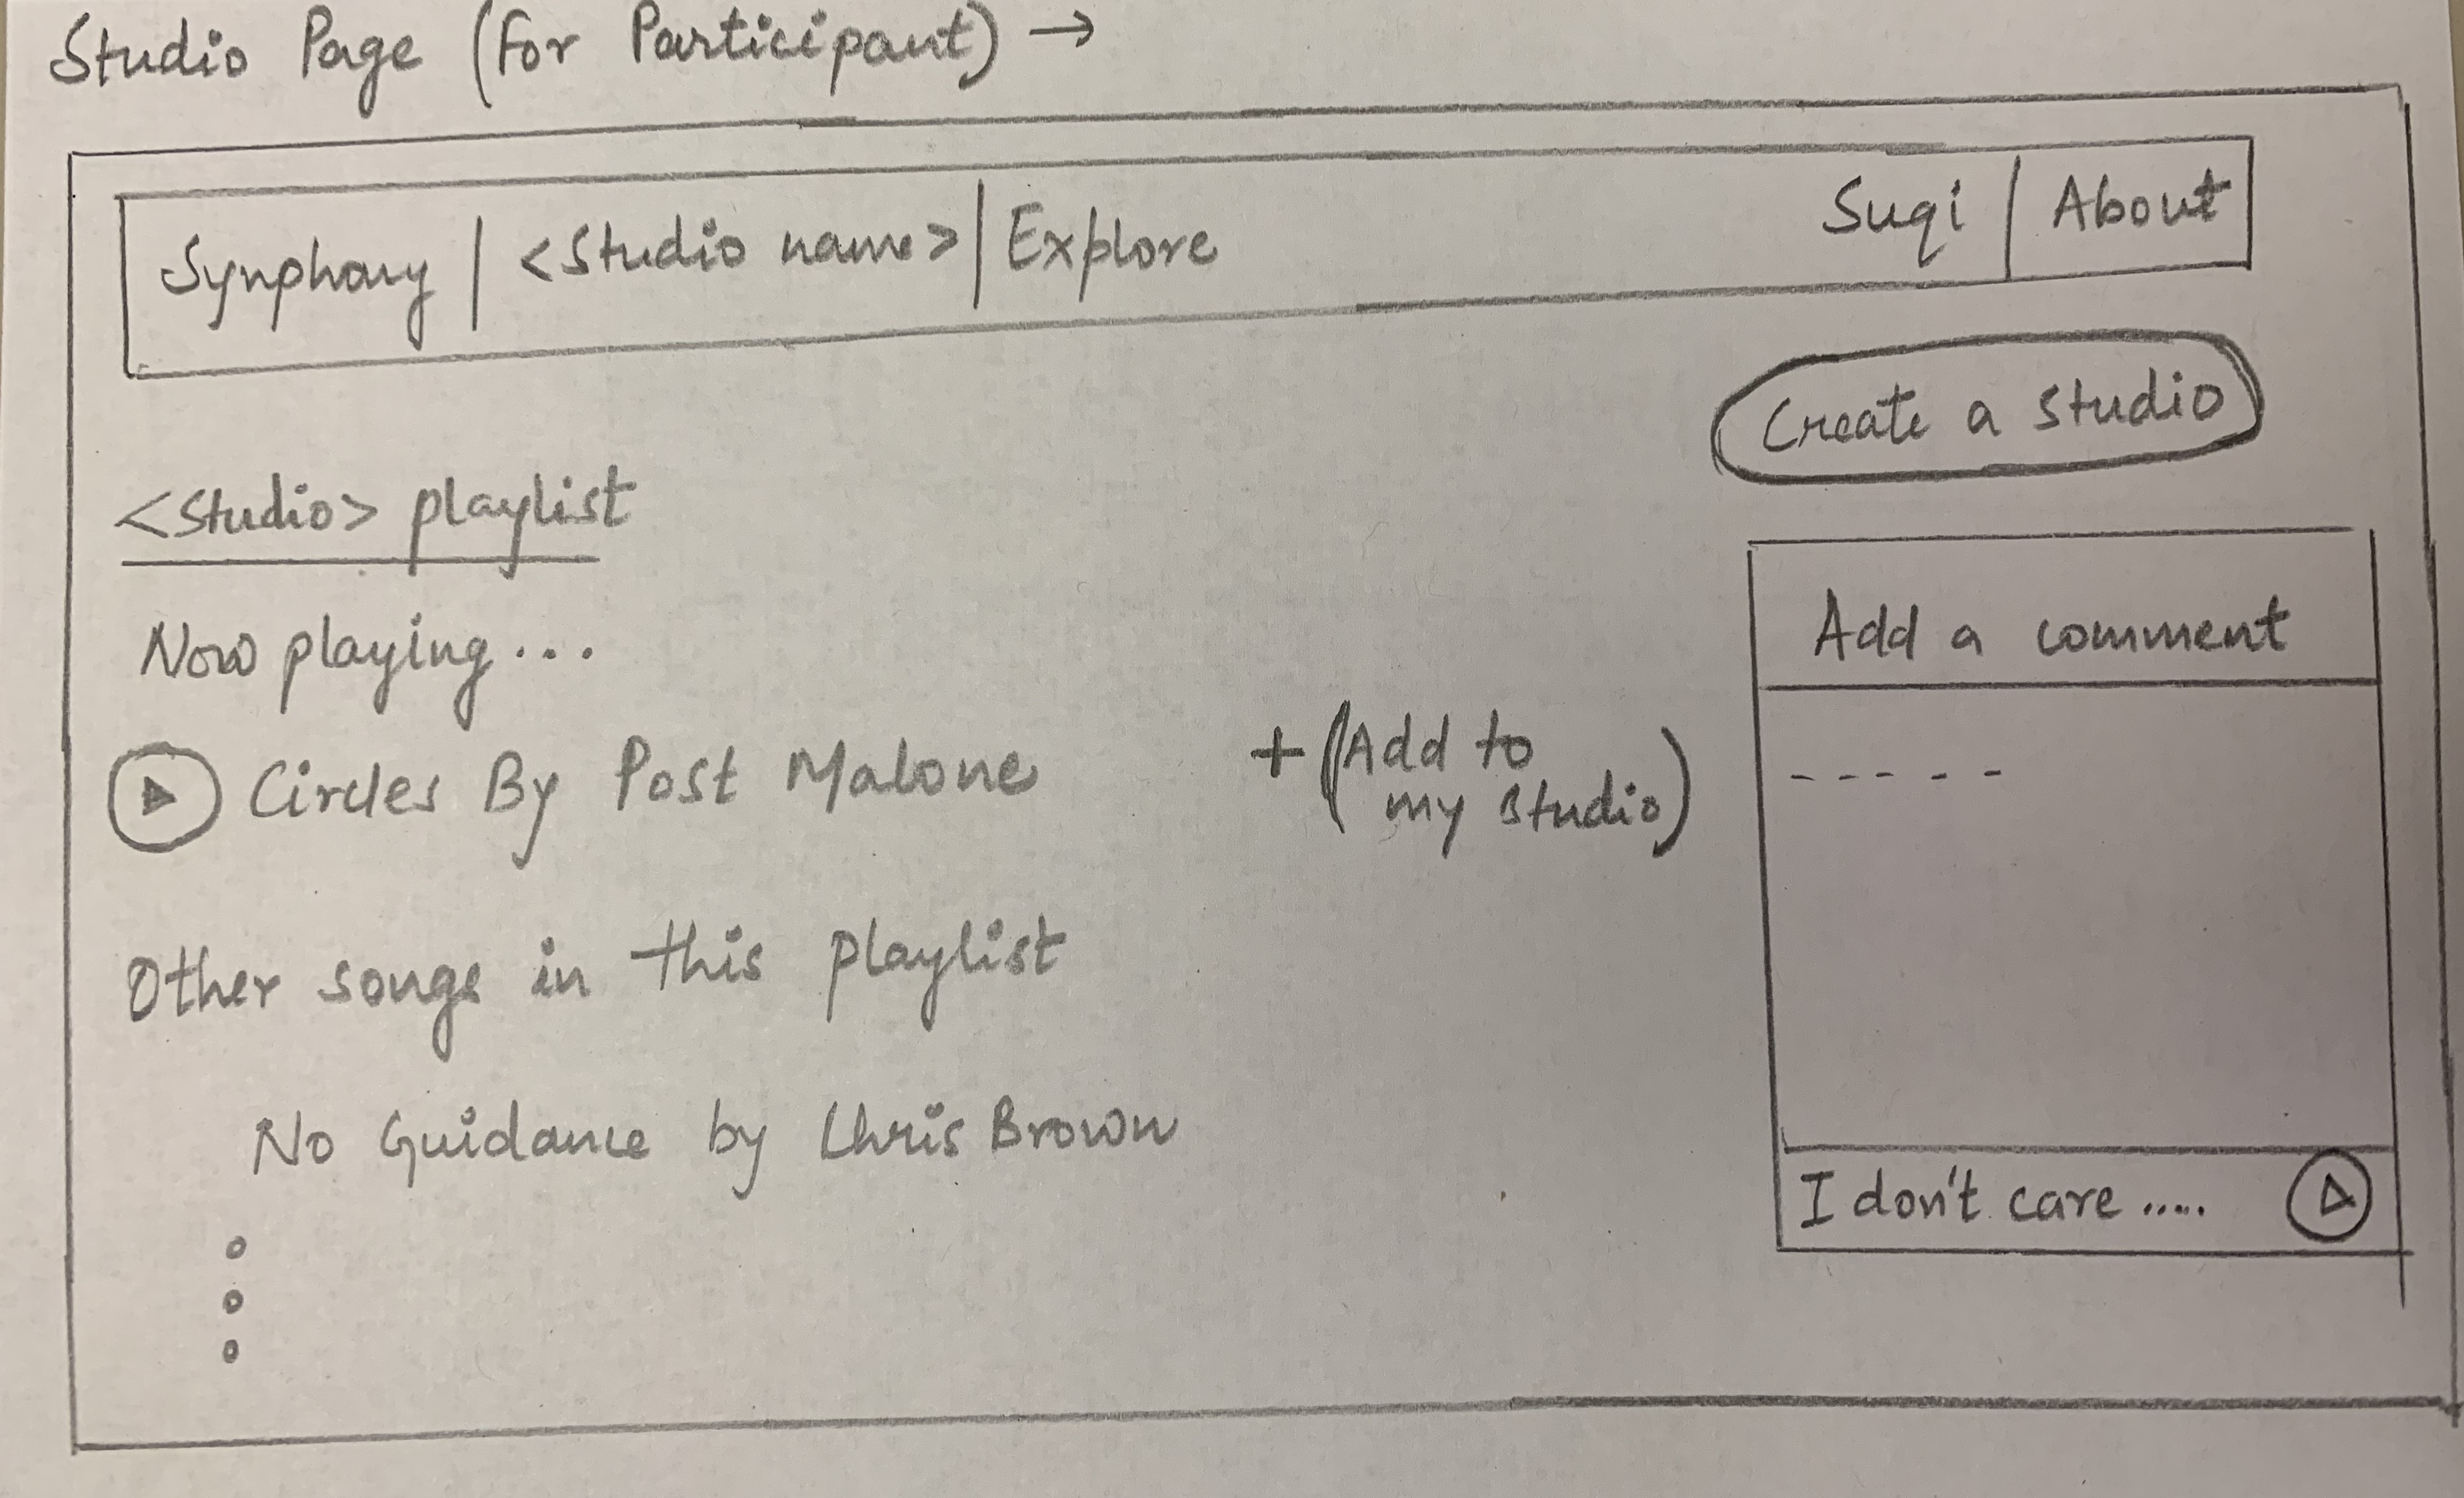 Studio Page (For Participant) →
Synphony | <Studio name> | Explore Suqi | About
Create a studio
<Studio> playlist
Now playing...
Circles By Post Malone
+ (Add to
my studio)
Other songs in this playlist
No Guidance by Chris Brown
Add a comment
- - - - -
I don't care .....